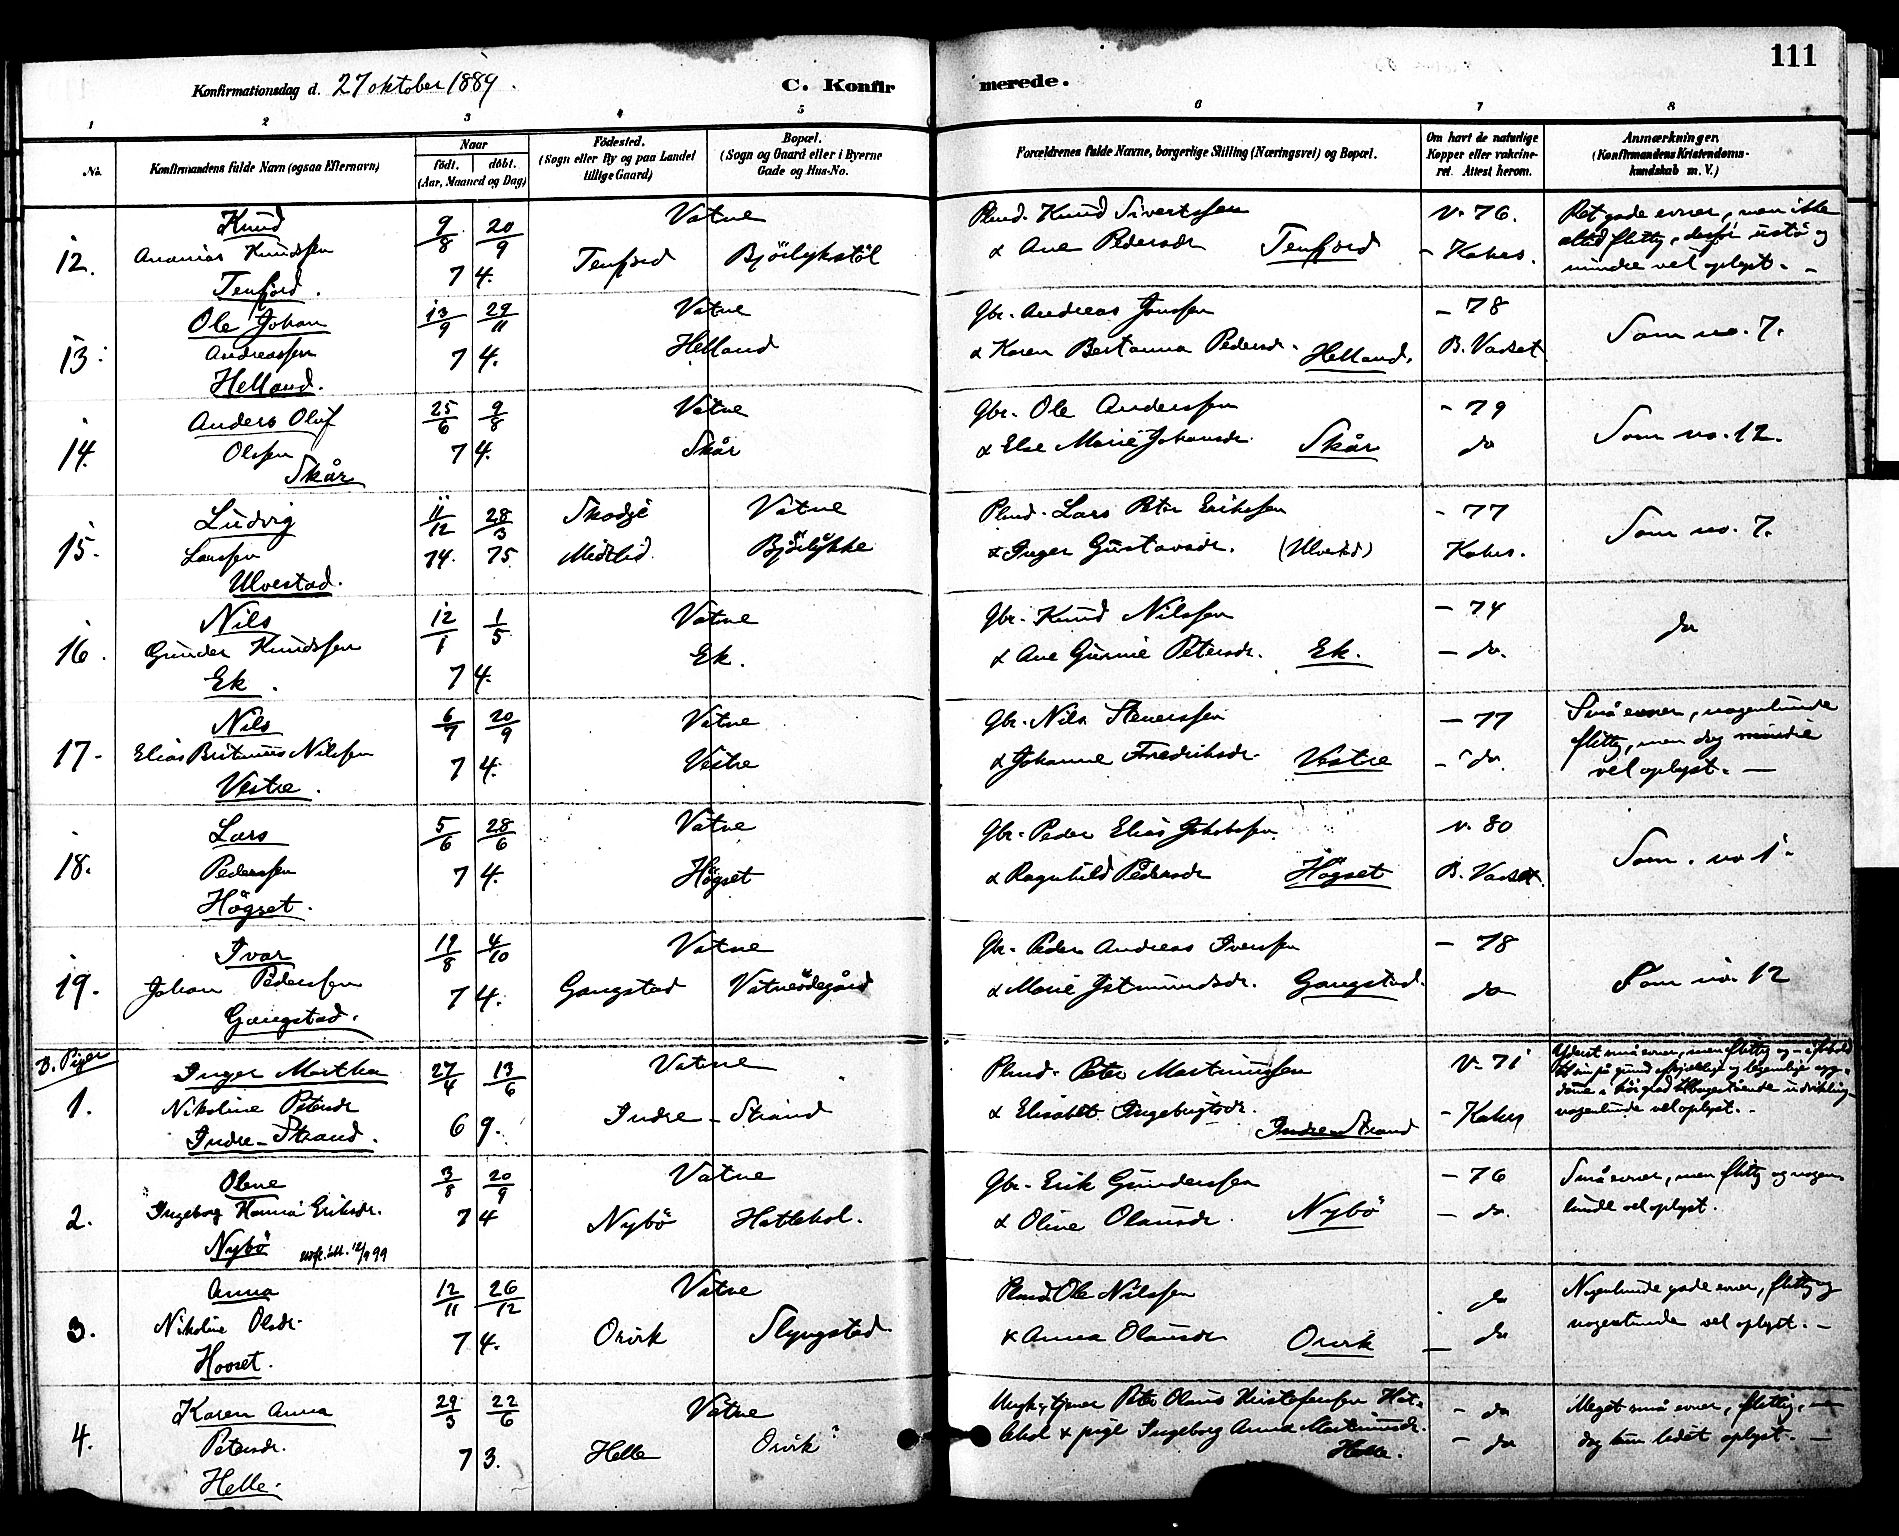 111
Konfirmationsdag d. 27 oktober 1889.
C. Konfirmerede.
1 2 3 4 5 6 7 8
No.
Konfirmandens fulde Navn (ogsaa Efternavn)
Naar
födt. döbt.
(Aar, Maaned og Dag)
Födested.
(Sogn eller By og paa Landet
tillige Gaard)
Bopæl.
(Sogn og Gaard eller i Byerne
Gade og Hus-No.
Forældrenes fulde Navne, borgerlige Stilling (Næringsvei) og Bopæl.
Om havt de naturlige
Kopper eller vakcine-
ret. Attest herom.
Anmærkninger.
(Konfirmandens Kristendoms-
kundskab m. V.)
Knud 9/8 20/9 Vatne Plmd. Knud Sivertssen v. 76. Ret gode evner, men ikke
12. Ananias Knudssen 74. Tenfjord Bjørlykstöl & Ane Pedersdr Tenfjord - Kobes. altid flittig, derfor ustö og
Tenfjord. mindre vel oplyst. -
Ole Johan 13/9 29/11 Vatne Gbr. Andreas Jonssen - 78
13. Andreassen 74. Helland & Karen Bertanna Pedersdr. Helland. B. Vasset Som no. 7.
Helland.
Anders Oluf 25/6 9/8 Vatne Gbr. Ole Anderssen - 79
14. Olssen 74. Skår & Else Marie Johansdr. Skår do Som no. 12.
Skår
Ludvig 11/12 28/3 Skodje Vatne Plmd. Lars Peter Erikssen - 77
15. Larssen 74. 75 Midtlid Bjørlykke & Inger Gustavsdr. Kobes. Som no. 7.
Ulvestad.
Nils 12/1 1/5 Vatne Gbr. Knud Nilssen - 74
16. Gunder Knudssen 74. Ek. & Ane Gurine Petersdr. Ek. - do. do
Ek.
Nils 6/7 20/9 Vatne Gbr. Nils Stenerssen - 77 Små evner, nogenlunde
17. Elias Nilssen 74. Vestre & Johanne Fredriksdr. Vestre - do. flittig, men dog mindre
Vestre. vel oplyst. -
Lars 5/6 28/6 Vatne Gbr. Peder Elias Jakobssen v. 80
18. Pederssen 74. Högset & Ragnhild Pedersdr Högset B. Vasset. Som. no 1.
Högset.
Ivar 19/8 4/10 Vatne Gbr. Peder Andreas Iverssen - 78
19. Johan Pederssen 74. Gangstad Vatneödegård & Marie Gangstad. do Som no. 12
Gangstad.
B. Piger
Inger Martha 27/4 13/6 Vatne Plmd. Peter Martinussen v. 71 Yderst små evner, men flittig og - i forhold
1. Nikoline Petersdr 69. Indre - Strand & Elisabet Ingebrigtsdr. Indre Strand - Kobes
Indre-Strand. nogenlunde vel oplyst. -
Oline 3/8 20/9 Vatne Gbr. Erik Gunderssen - 76 Små evner, men flittig og nogen-
2. Ingeborg Hanna Eriksdr. 74 Nybö Hattehol. & Oline Olausdr. Nybö - do. lunde vel oplyst.
Nybö 12/9 99
Anna 12/11 26/12 Vatne Plmd. Ole Nilssen do Nogenlunde gode evner, flittig og
3. Nikoline Olsdr. 74. Orvik Slyngstad & Anna Olausdr Orvik - do nogenlunde vel oplyst. -
Hovset.
Karen Anna 29/3 22/6 Vatne Ungk., tjener Peter Olaus Kristofersen Hat- - do Meget små evner, flittig,
4. Petersdr. 73. Helle Orvik ? tehol & pige Ingeborg Anna Martinusdr. - do dog kun lidet oplyst. -
Helle. Helle.